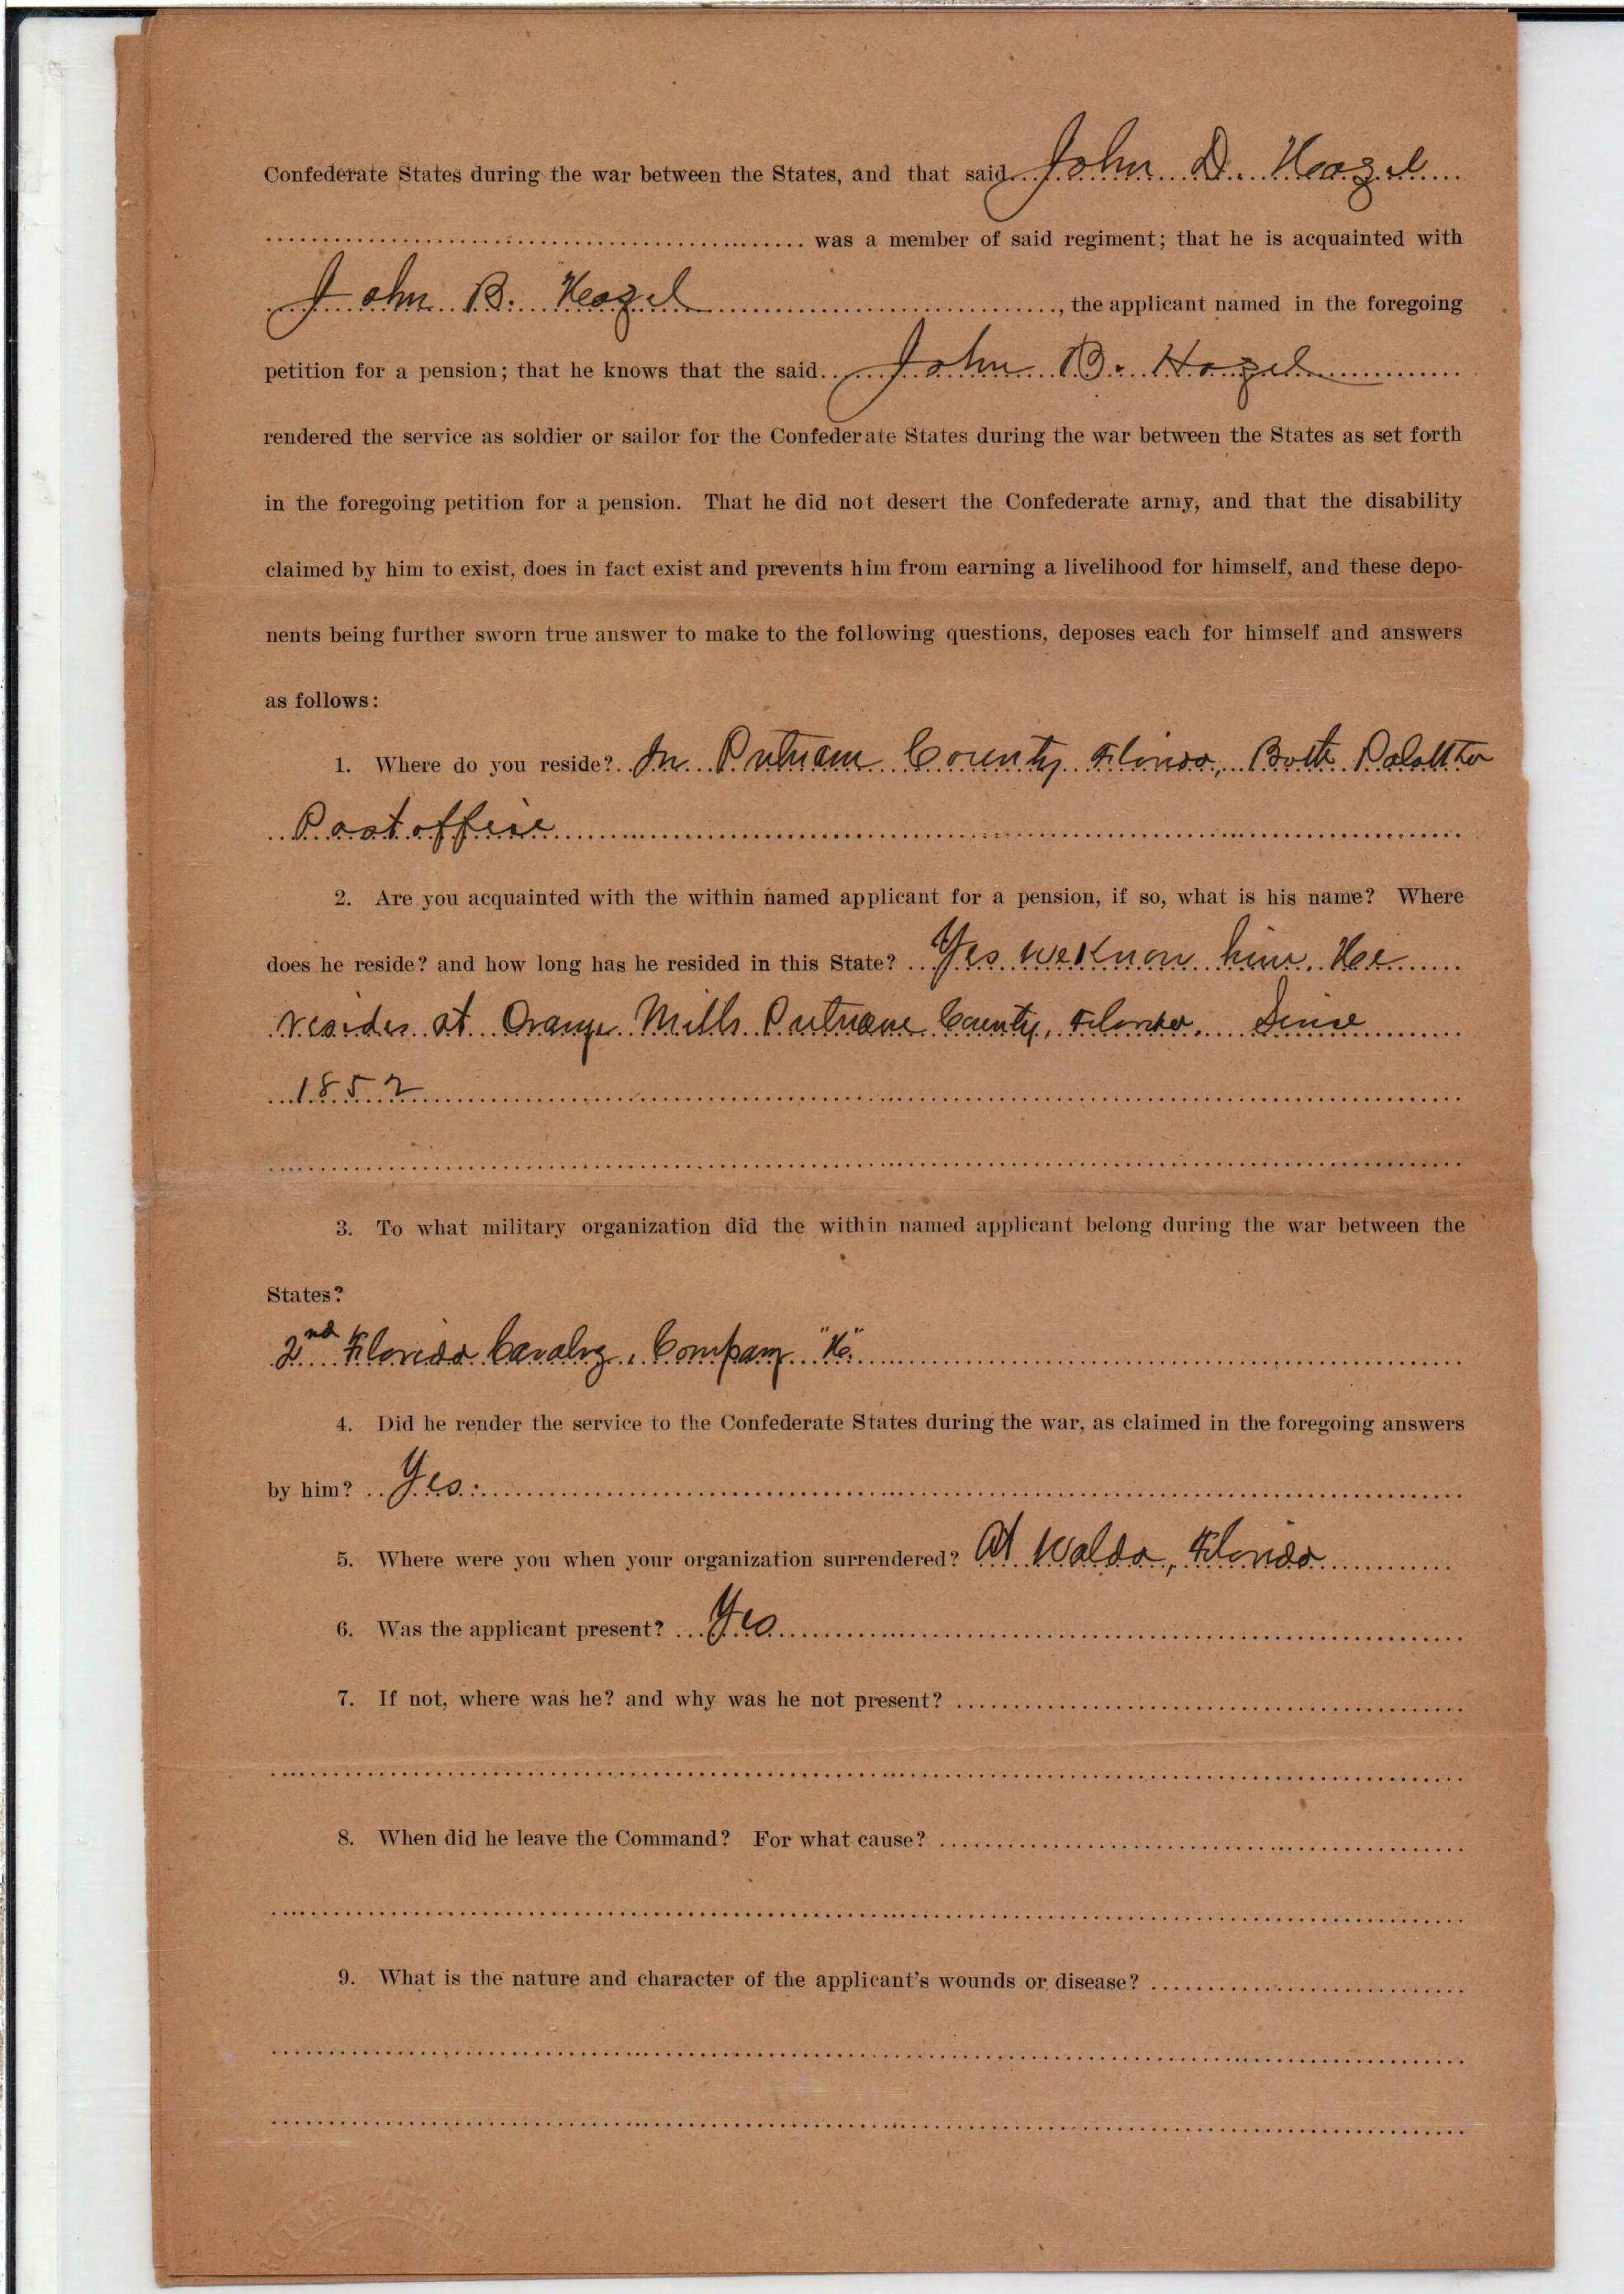 Confederate States during the war between the States, and that said John D. Hazel
was a member of said regiment; that he is acquainted with
John B. Hazel, the applicant named in the foregoing
petition for a pension; that he knows that the said John B. Hazel
rendered the service as soldier or sailor for the Confederate States during the war between the States as set forth
in the foregoing petition for a pension. That he did not desert the Confederate army, and that the disability
claimed by him to exist, does in fact exist and prevents him from earning a livelihood for himself, and these depo-
nents being further sworn true answer to make to the following questions, deposes each for himself and answers
as follows:
1. Where do you reside? In Putnam County Florida, Both Palatka
Postoffice
2. Are you acquainted with the within named applicant for a pension, if so, what is his name? Where
does he reside? and how long has he resided in this State? Yes we know him. He
resides at Orange Mills Putnam County, Florida. Since
1852
3. To what military organization did the within named applicant belong during the war between the
States?
2nd Florida Cavalry, Company
4. Did he render the service to the Confederate States during the war, as claimed in the foregoing answers
by him? Yes.
5. Where were you when your organization surrendered? At Waldo, Florida
6. Was the applicant present? Yes
7. If not, where was he? and why was he not present?
8. When did he leave the Command? For what cause?
9. What is the nature and character of the applicant's wounds or disease?